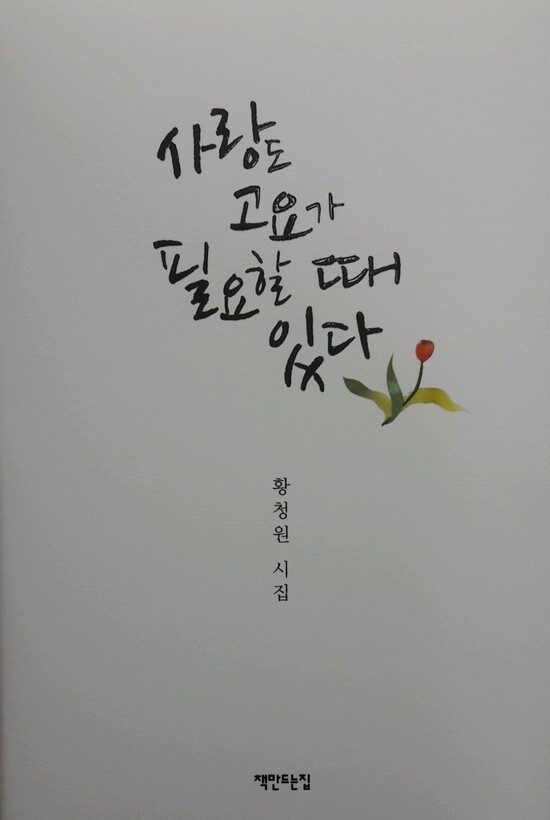 사랑도
고요가
필요할 때
있다
황청원 시집
책만드는집